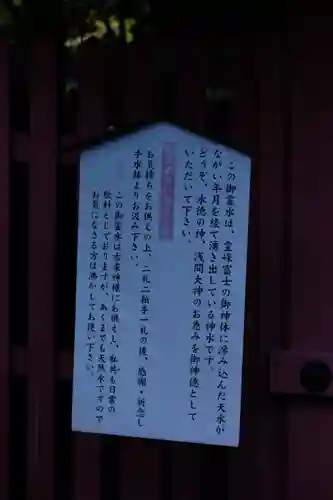 この御霊水は、霊峰富士の御神体に滲み込んだ天水が
ながい年月を経て湧き出している神水です。
どうぞ、水徳の神、浅間大神のお恵みを御神徳として
いただいて下さい。
お気持ちをお供えの上、二礼二拍手一礼の後、感謝・祈念し
手水鉢よりお汲み下さい。
この御霊水は古来神様にお供えし、私共も日常の
飲料としておりますが、あくまでも天然水ですので
お気になさる方は沸かしてお使い下さい。